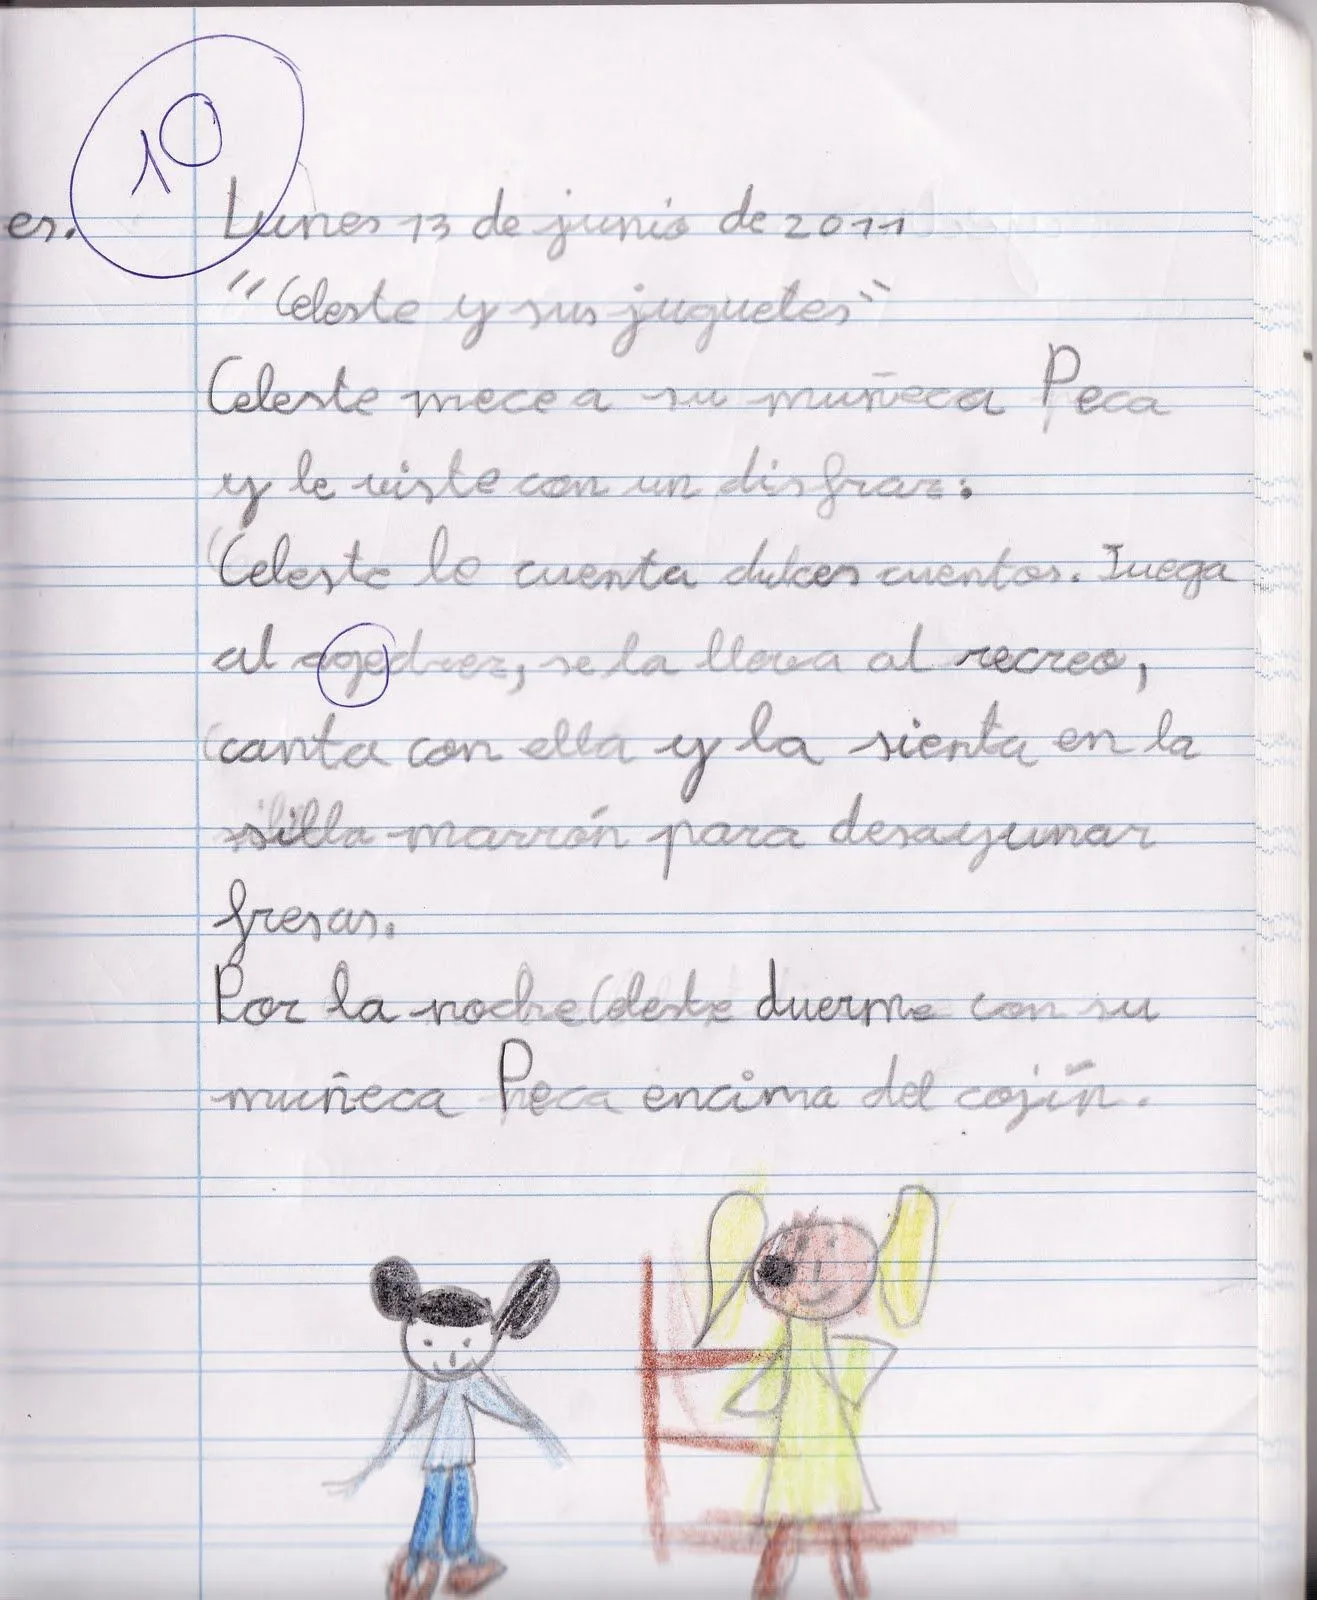 10
es. Lunes 13 de junio de 2011
"Celeste y sus juguetes"
Celeste mece a su muñeca Peca
y le viste con un disfraz.
Celeste le cuenta dulces cuentos. Juega
al ajedrez, se la lleva al recreo,
canta con ella y la sienta en la
silla marrón para desayunar
fresas.
Por la noche Celeste duerme con su
muñeca Peca encima del cojín.